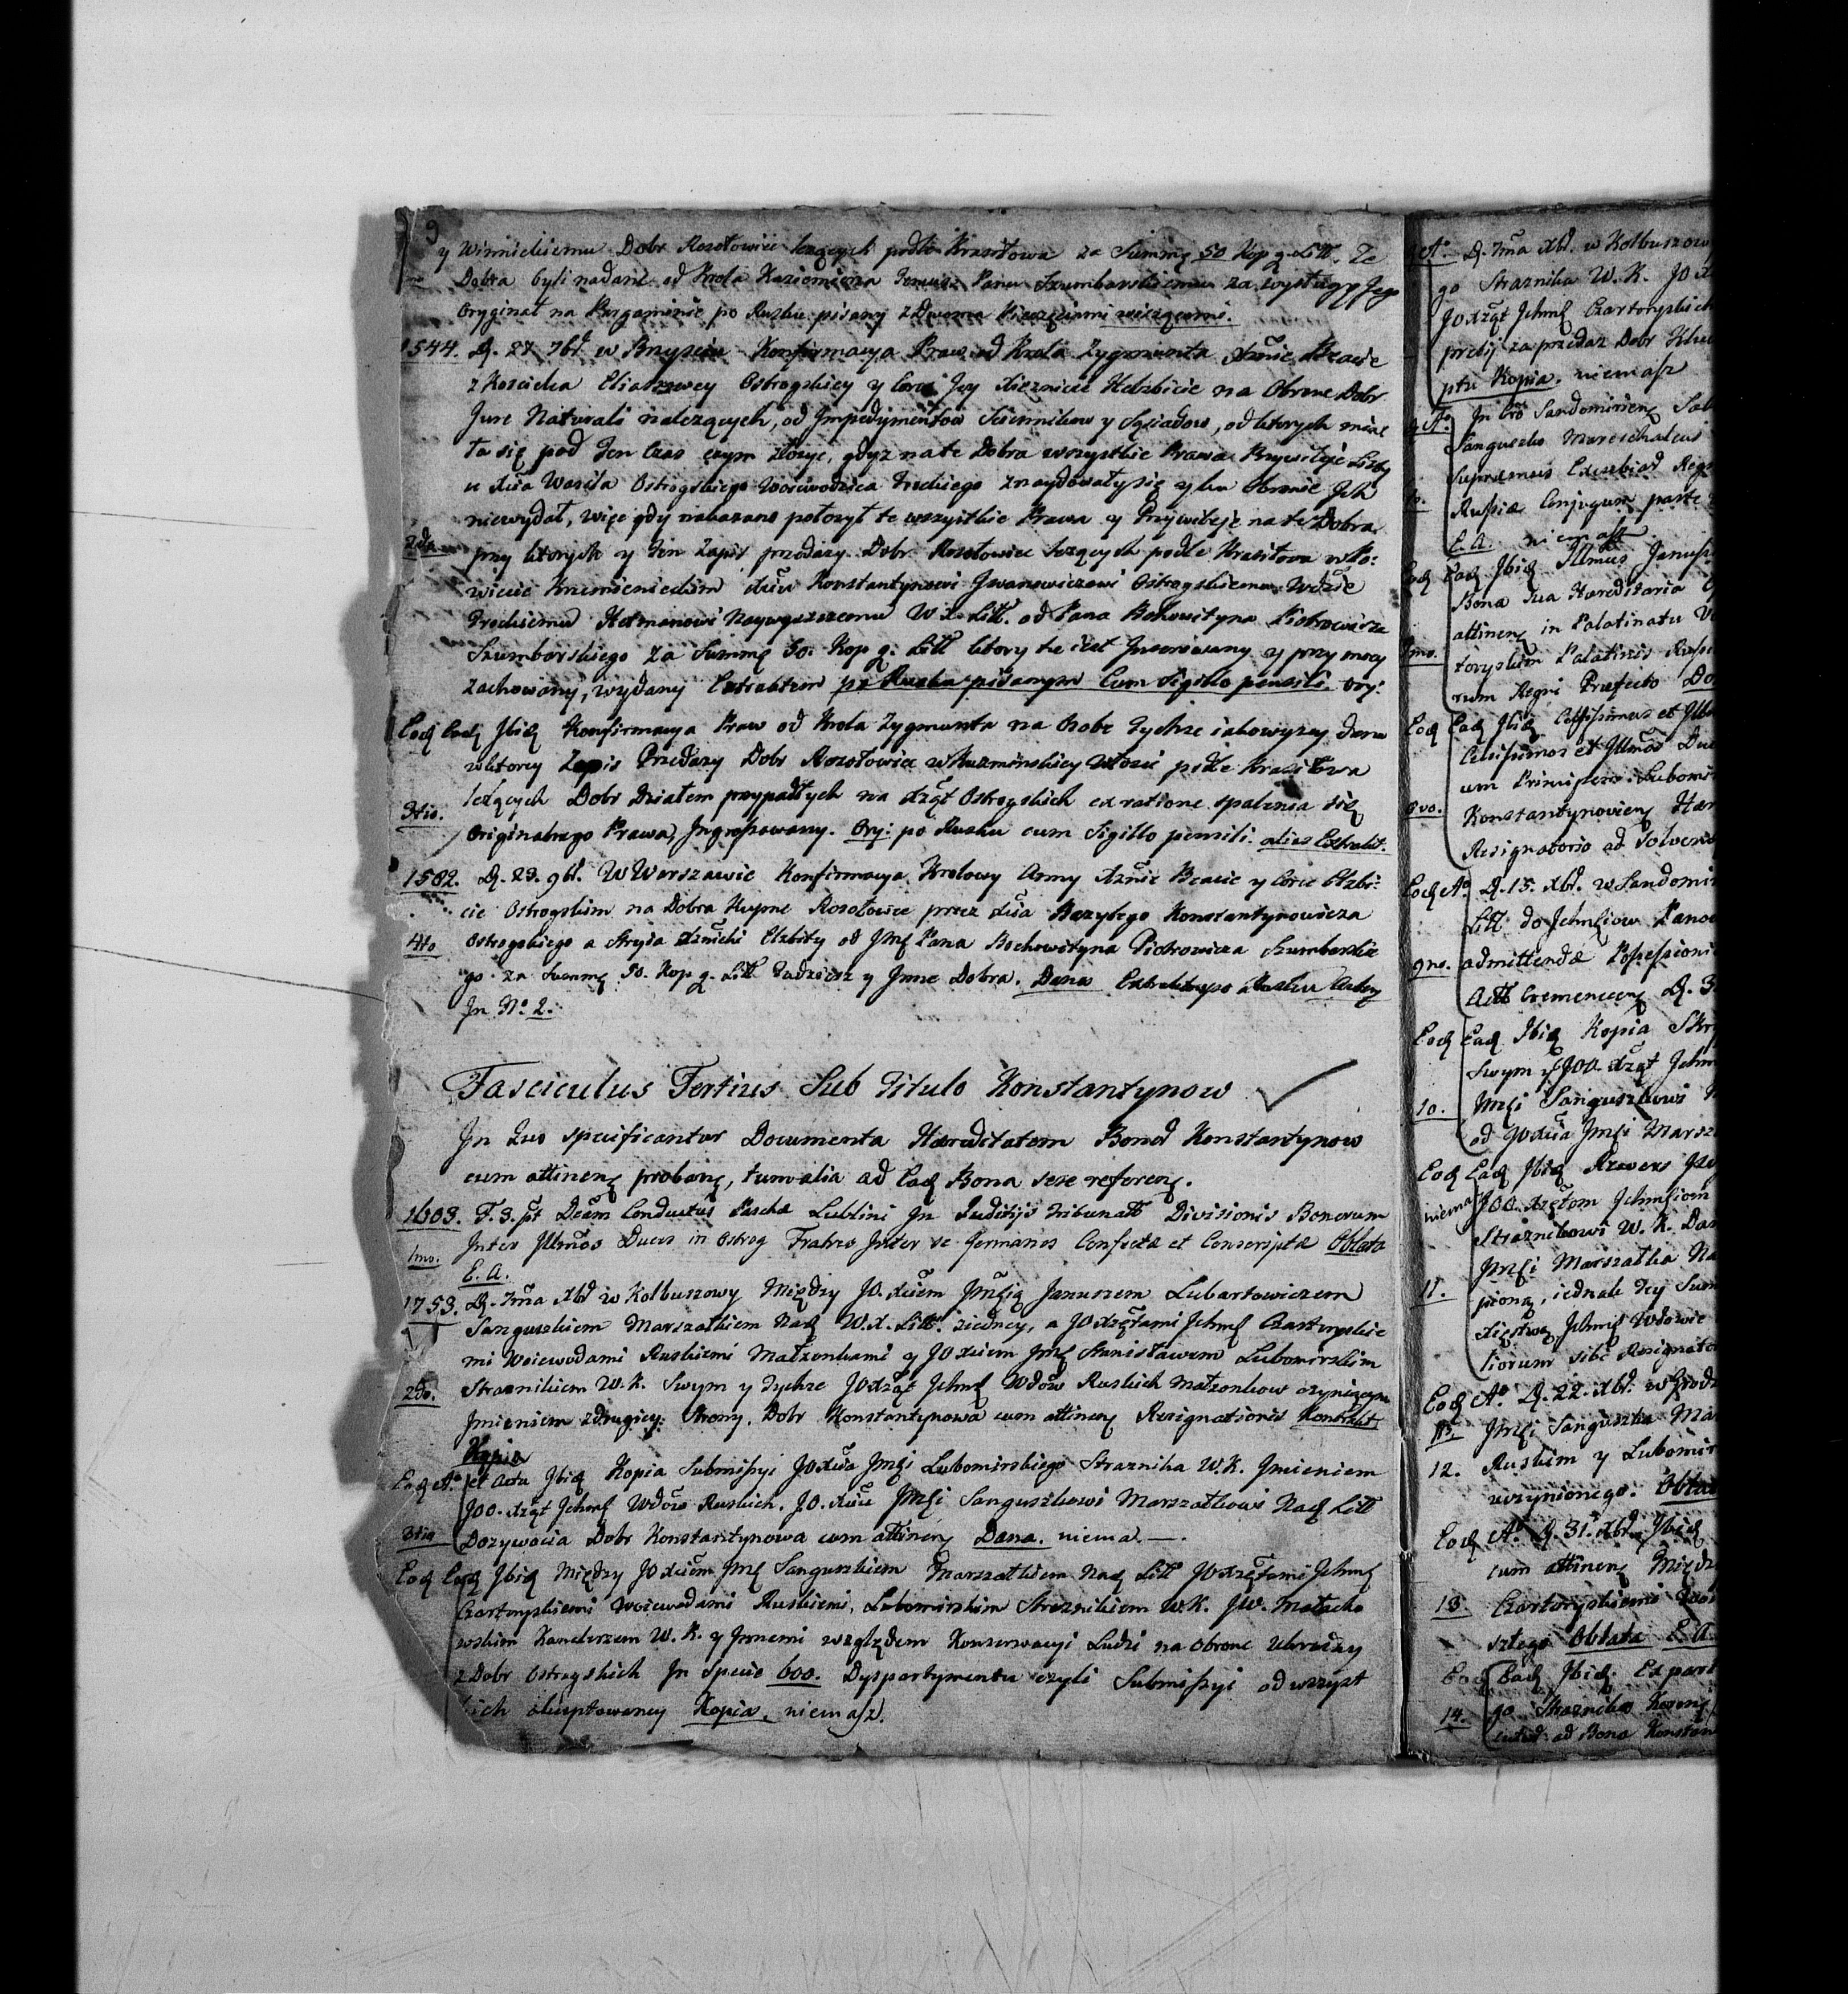 9
y Winnickiemu Dobr Rosołowiec leżących podle Krasiłowa za Summę 50 Kop g. Litt. Te
Dobra byli nadane od Krola Kazimierza Panu Szumbarskiemu za wysługę Jego
Oryginał na Pargaminie po Rusku pisany z Dwoma Pieczęciami wiszącemi.
1544. D. 27 7br. w Brzyściu Konfirmacya Praw od Krola Zygmunta Xźnie Beacie
z Koscielca Eliaszowey Ostrogskiey y Corce Jey Xiezniczce Helzbicie na Obrone Dobr
Jure Naturali nalezących, od Jmpedymentow Sciennikow y Sąsiadow, od ktorych miał
ta się pod Ten Czas czym złożyc, gdyz na te Dobra wszystkie Prawa Przywileje Listy
u Xcia Wasila Ostrogskiego Woiewodzica Trockiego znaydowały się y ku Obronie Jch
niewydał, więc gdy nakazano położył te wszystkie Prawa y Przywileje na te Dobra
2do przy ktorych y Ten Zapis przedazy Dobr Rosołowiec leżących podle Krasiłova w Po:
wiecie Krzemienieckim Xciu Konstantynowi Jwanowiczowi Ostrogskiemu Wdzie
Trockiemu Hetmanowi Naywyzszemu W. X. Litt. od Pana Bohowityna Piotrowicza
Szumbarskiego za Summę 50. Kop g: Litt ktory tu iest Jnserowany y przy mocy
zachowany, wydany Extraktem po Rusku pisanym Cum Sigillo pensili. Ory:
Eod Eod Jbid Konfirmacya Praw od Krola Zygmunta na Osobe Tychze iakowyzey dana
w ktorey Zapis Przedazy Dobr Rosołowiec w Kuzminskiey Włosci podle Krasiłowa
leżących Dobr Działem przypadłych na Xżąt Ostrogskich ex ratione spalenia się
3tio. Originalnego Prawa, Jngrossowany. Ory: po Rusku cum Sigillo pensili. alias Extrakt.
1582. D. 23. 9br. W Warszawie Konfirmacya Krolowy Anny Xźnie Beacie y Corce Elzbi:
cie Ostrogskim na Dobra Kupne Rosołowce przez Xcia Bazylego Konstantynowicza
4to Ostrogskiego a Stryia Xźniczki Elzbity od Jmś Pana Bochowityna Piotrowicza Szumbarskie
go za Summę 50. Kop g. Litt Tudziesz y Jnne Dobra. Dana Extraktem po Rusku
Jn No. 2.
Fasciculus Tertius Sub Titulo Konstantynow
Jn Quo specificantur Documenta Hæreditatem Bonor Konstantynow
cum attinen probans, tum alia ad Ead Bona sese referen.
1603. F. 3. pt Dcam Conductus Pascha Lublini Jn Judicijs Tribunalt Divisionis Bonorum
1mo. Jnter Jllmos Duces in Ostrog Fratres Jnter se Germanos Confectæ et Conscriptæ Oblata
E. A.
1753. D. 7ma Xbr w Kolbuszowy Między JO. Xciem Jmścią Januszem Lubartowiczem
Sanguszkiem Marszałkiem Nad W. X. Litt. ziedney, a JO Xzętami Jchmś Czartoryskie
mi Woiewodami Ruskiemi Małzonkami y JO Xciem Jmś Stanisławem Lubomirskim
2do. Straznikiem W. K. Swym y Tychze JO Xżąt Jchmś Wdow Ruskich Małzonkow czyniącym
Jmieniem zdrugiey Strony, Dobr Konstantynowa cum attinen Resignationis Kontrakt
Kopia
Eod Ao. et Actu Jbid Kopia Submissyi JO Xcia Jmści Lubomirskiego Straznika W. K. Jmieniem
JOO. Xżąt Jchmś Wdow Ruskich, JO. Xciu Jmści Sanguszkowi Marszałkowi Nad Litt
3tio Dozywocia Dobr Konstantynowa cum attinen Dana. niema —.
Eod Eod Jbid Między JO Xciem Jmś Sanguszkiem Marszałkiem Nad Litt JO Xzętami Jchmś
Czartoryskiemi Woiewodami Ruskiemi, Lubomirskim Straznikiem W. K. JW. Małacho
wskim Kanclerzem W. K. y Jnnemi względem Konserwacyi Ludzi na Obrone Ukrainy
z Dobr Ostrogskich Jn Specie 600. Dyspartymentu czyli Submissyi od wszyst
kich akceptowaney Kopia. niemasz.
D. 7ma Xbr. w Kolbuszow
go Straznika W. K. JO X
JO Xżąt Jchmś Czartoryskich
precij za przedaz Dobr
ptu Kopia. niemasz
Jn Cro Sandomirien
Sanguszko Mareschalcus
Supremus Excubiar Reg
Russiæ Conjugum parte
E. A. niemasz
Eod Eod Jbid Jllmus Janus
Bona sua Hæreditaria
attinen in Palatinatu
toryskim Palatinis Russ
rum Regni Præfecto
Eod Eod Jbid Celsissimus et Jll
Celsissimos et Jllmos Du
um Principem Lubomir
8vo. Konstantynovien
Resignatorio ad Solven
Eod Ao. D. 15. Xbr. w Sandomir
Litt do Jchmściow Panow
9no. admittendæ Possessioni
Actt Cremenecen D. 3
Eod Eod Jbid Kopia
Swym y JOO Xżąt Jchm
10. Jmści Sanguszkowi
od JO Xcia Jmści Marsz
Eod Eod Jbid Rewers
niemasz JOO. Xzętom Jchmściom
Straznikowi W. K.
Jmści Marszałka Na
11. piona, iednak Tey Sum
Xięstwa Jchmś
liorum sibi Resignato
Eod Ao. D. 22. Xbr. w Brod
Jmści Sanguszka Ma
12. Ruskim y Lubomir
uczynionego. Oblat
Eod Ao. D. 31. Xbr. Jbid
cum attinen Między
13. Czartoryskiemi
sztego Oblata E. A.
Eod Eod Jbid. Ex part
14. go Straznika Koron
ad Bona Konstan